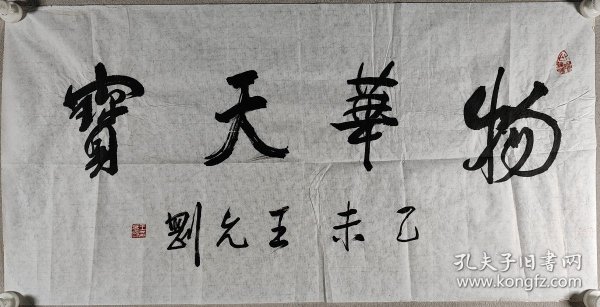 物華天寶
乙未王允
孔夫子旧书网
www.kongfz.com